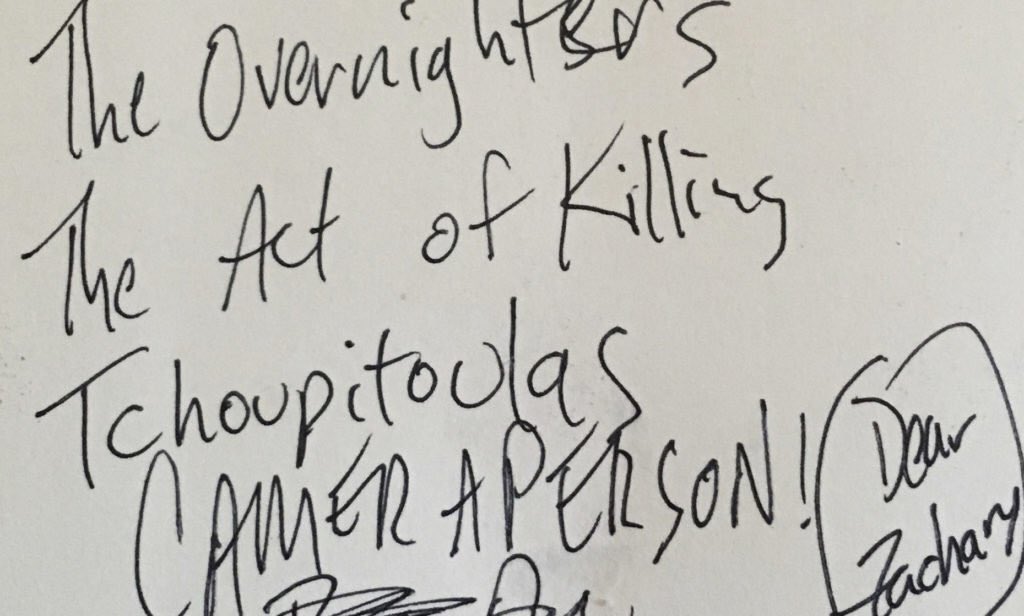 The Overnighters
The Act of Killing
Tchoupitoulas
CAMERAPERSON!
Dear
Zachary